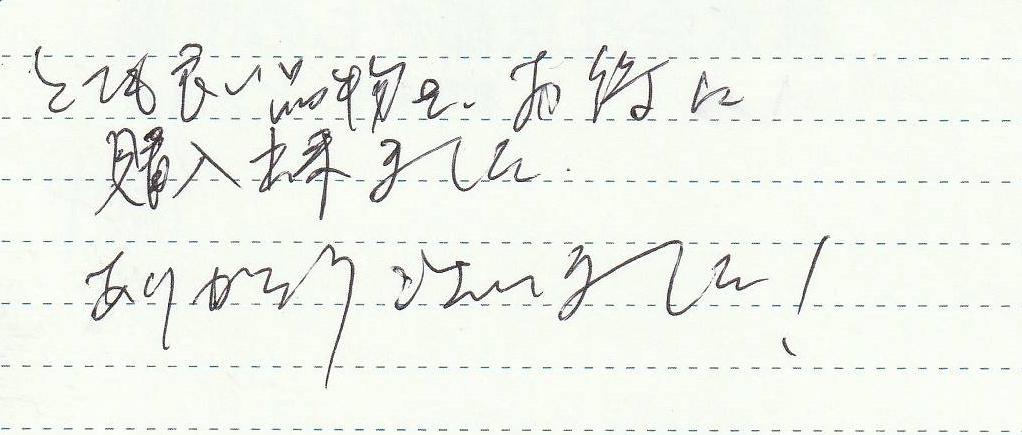 とても良い品物を、お得に
購入出来ました.
ありがとうございました!